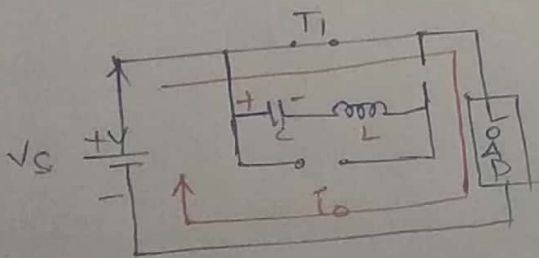 T1
+ -
C L
+V
VS
-
Io
LOAD